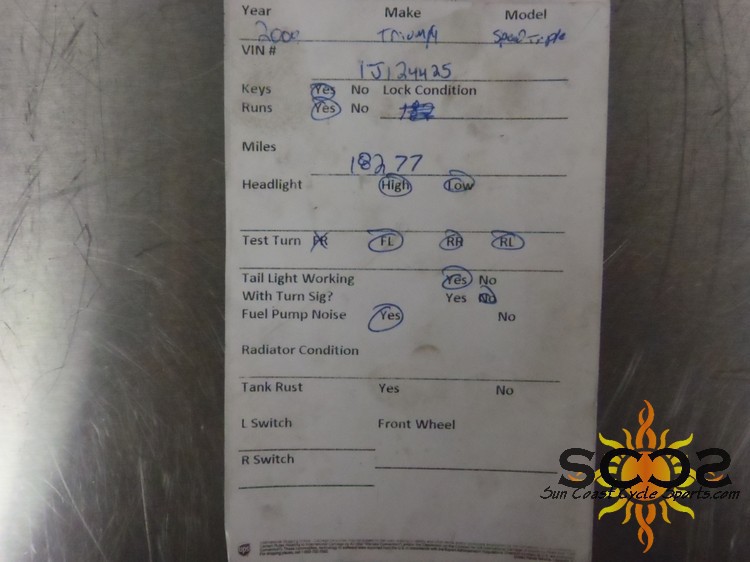 Year Make Model
2000 Triumph Speed Triple
VIN #
1J124425
Keys Yes No Lock Condition
Runs Yes No
Miles
18277
Headlight High Low
Test Turn FR FL RR RL
Tail Light Working Yes No
With Turn Sig? Yes No
Fuel Pump Noise Yes No
Radiator Condition
Tank Rust Yes No
L Switch Front Wheel
R Switch
SCCS
Sun Coast Cycle Sports.com
ups